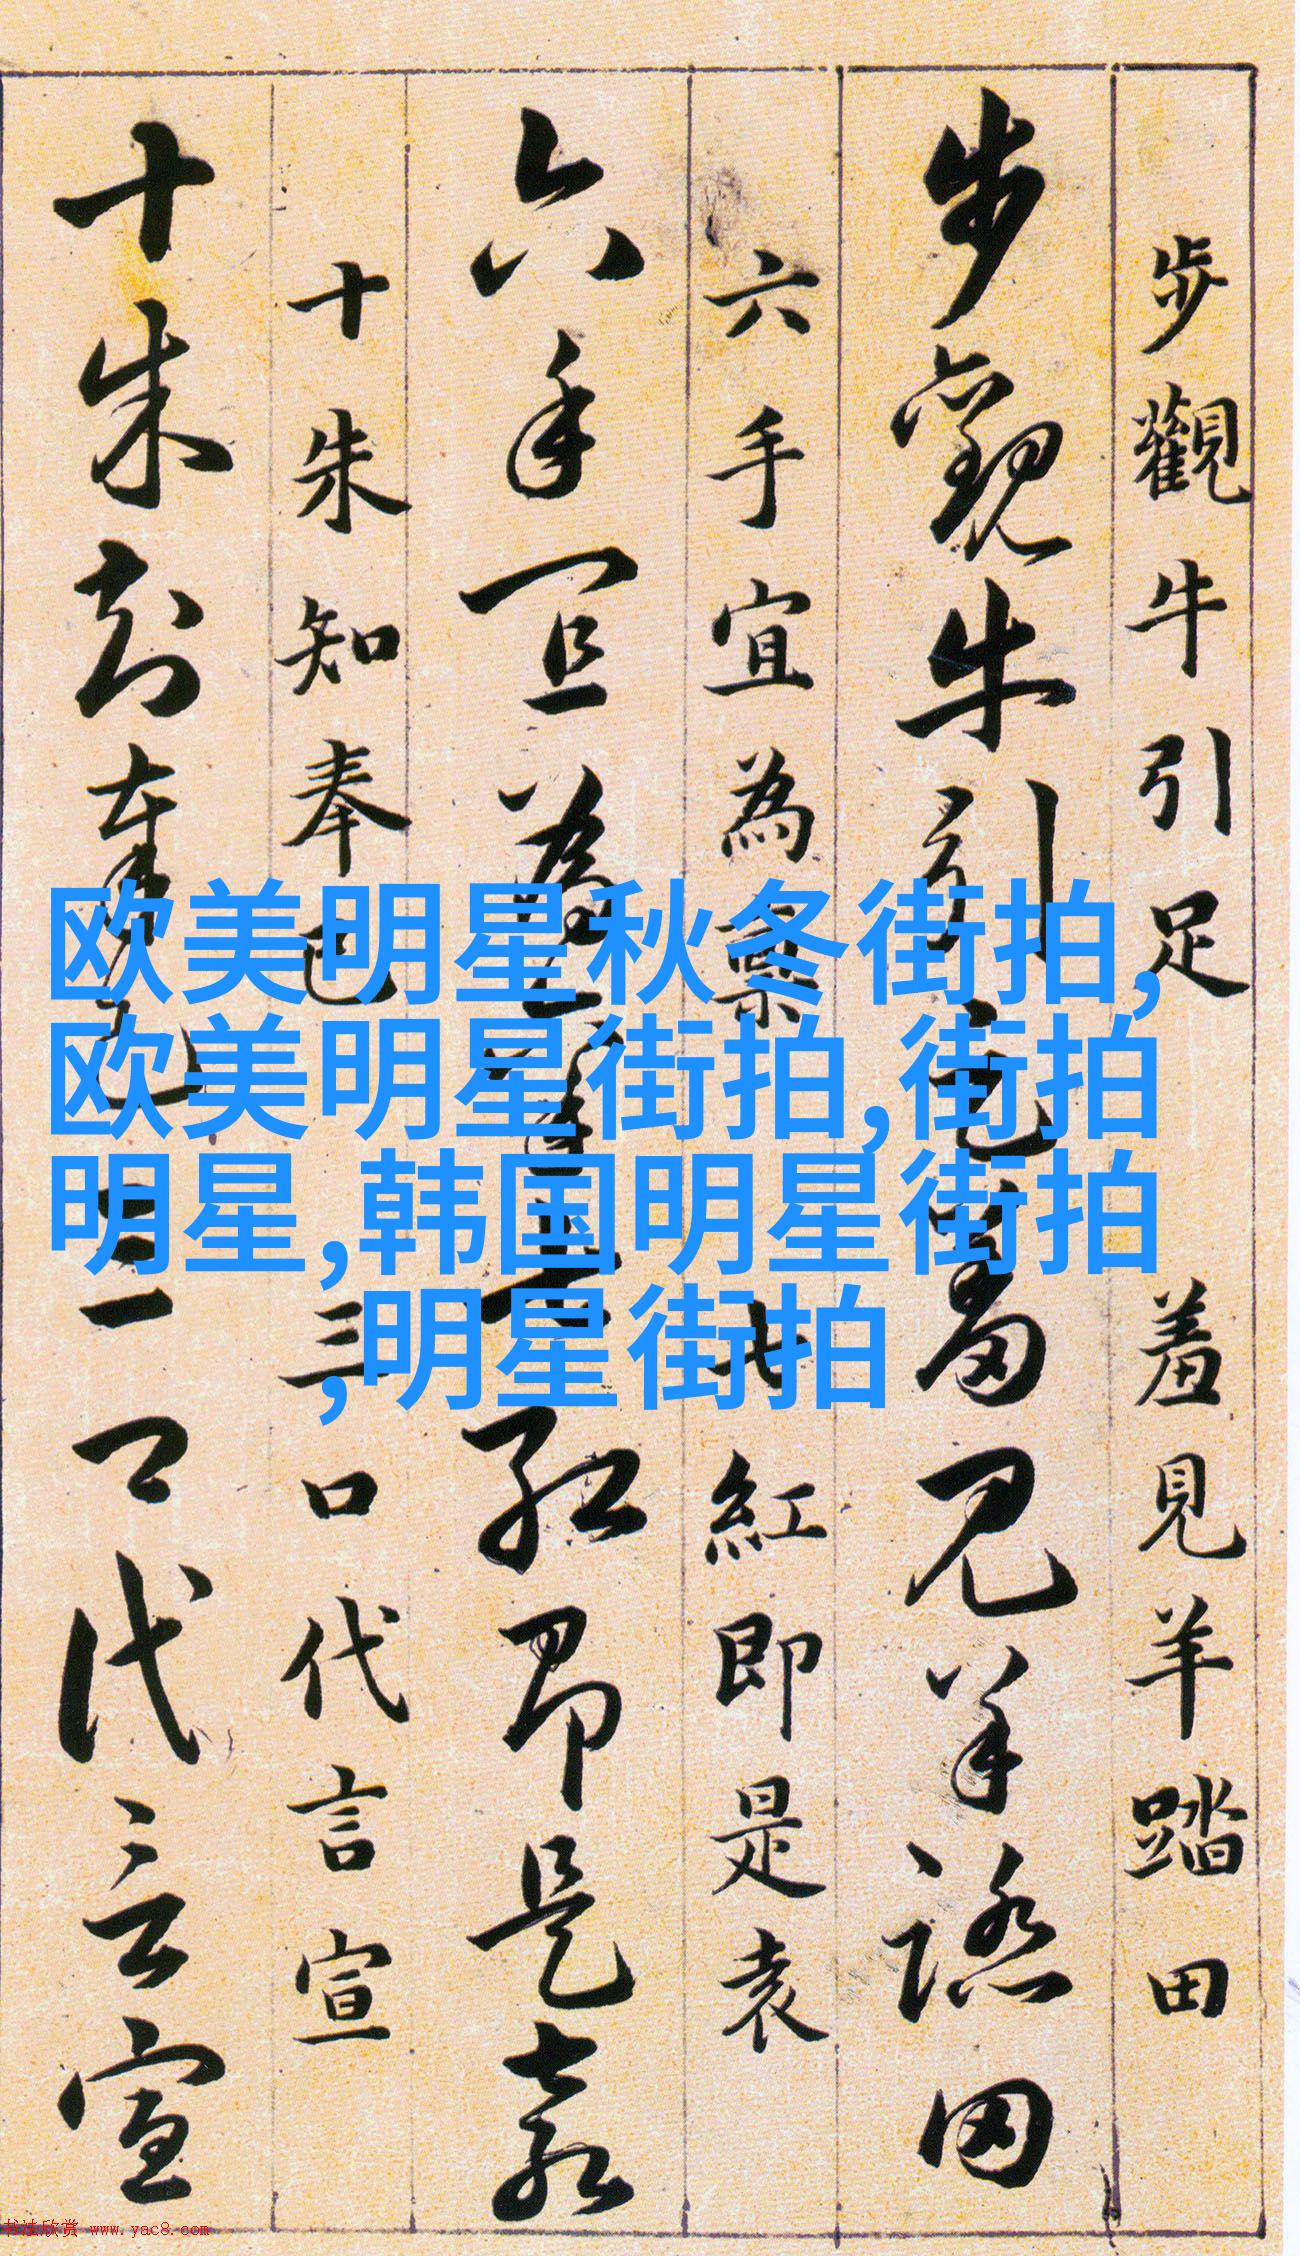 步觀牛引足 羞見羊踏田
步觀牛引足羞見羊踏田
六手宜為禀 七紅即是袁
六手宜為禀七紅即是袁
十朱知奉已 三口代言宣
十朱知奉已三口代言宣
欧美明星秋冬街拍,
欧美明星街拍,街拍
明星,韩国明星街拍
,明星街拍
书法欣赏 www.yac8.com